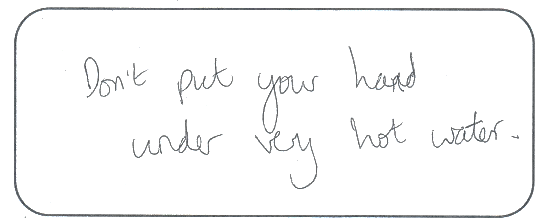 Don't put your hand
under very hot water.